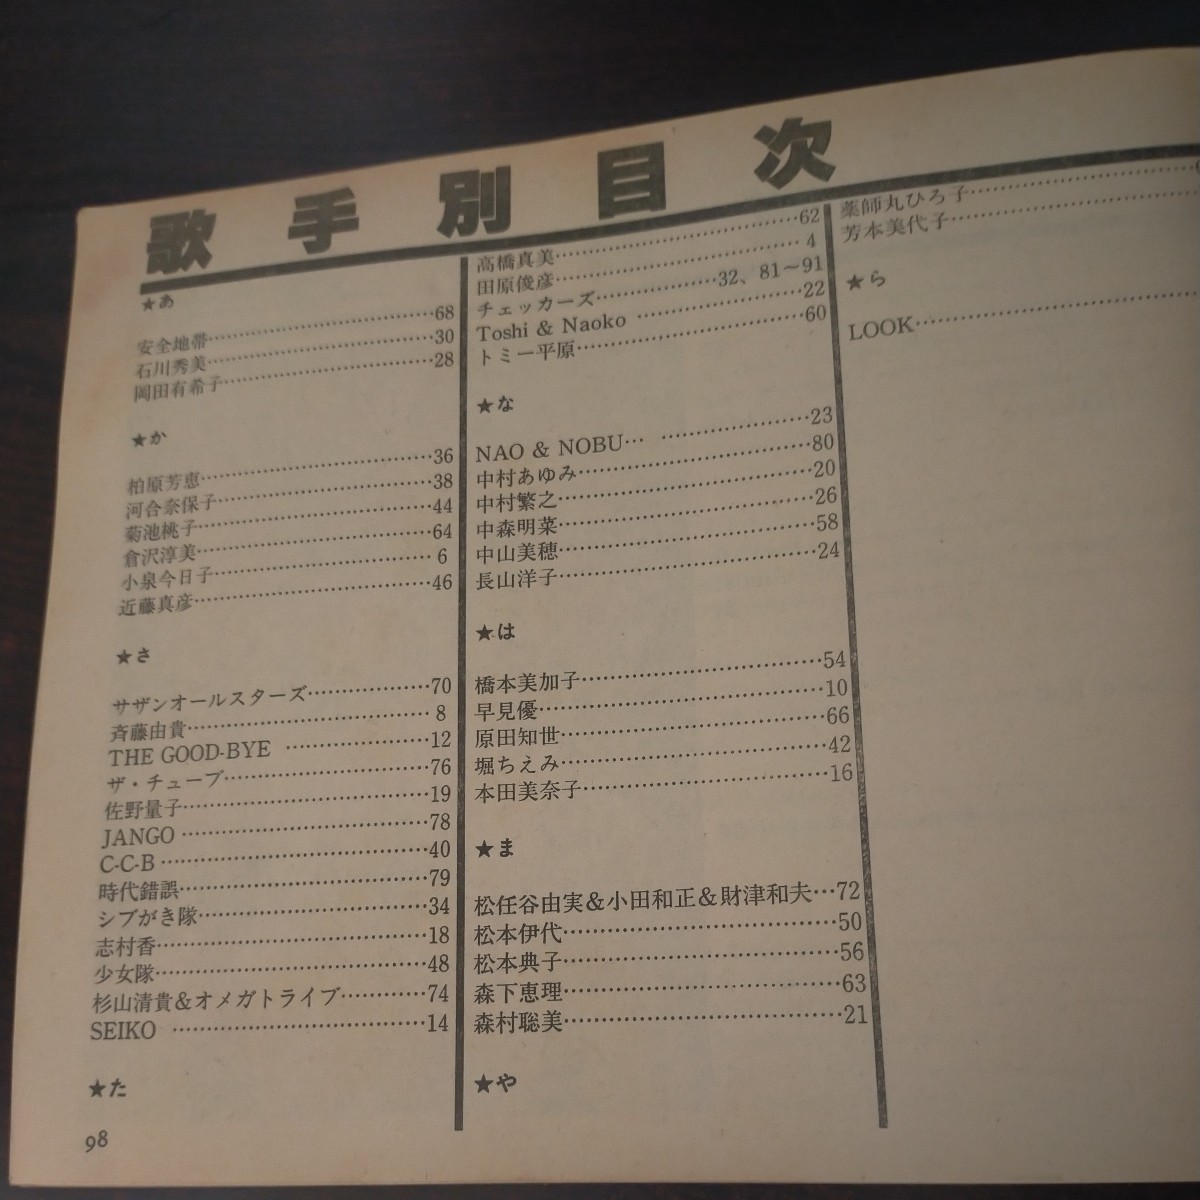 歌手別目次
★あ
安全地帯……68
石川秀美……30
岡田有希子……28
★か
柏原芳恵……36
河合奈保子……38
菊池桃子……44
倉沢淳美……64
小泉今日子……6
近藤真彦……46
★さ
サザンオールスターズ……70
斉藤由貴……8
THE GOOD-BYE……12
ザ・チューブ……76
佐野量子……19
JANGO……78
C-C-B……40
時代錯誤……79
シブがき隊……34
志村香……18
少女隊……48
杉山清貴&オメガトライブ……74
SEIKO……14
★た
98
高橋真美……62
田原俊彦……4
チェッカーズ……32、81〜91
Toshi & Naoko……22
トミー平原……60
★な
NAO & NOBU……23
中村あゆみ……80
中村繁之……20
中森明菜……26
中山美穂……58
長山洋子……24
★は
橋本美加子……54
早見優……10
原田知世……66
堀ちえみ……42
本田美奈子……16
★ま
松任谷由実&小田和正&財津和夫…72
松本伊代……50
松本典子……56
森下恵理……63
森村聡美……21
★や
薬師丸ひろ子……
芳本美代子……
★ら
LOOK……